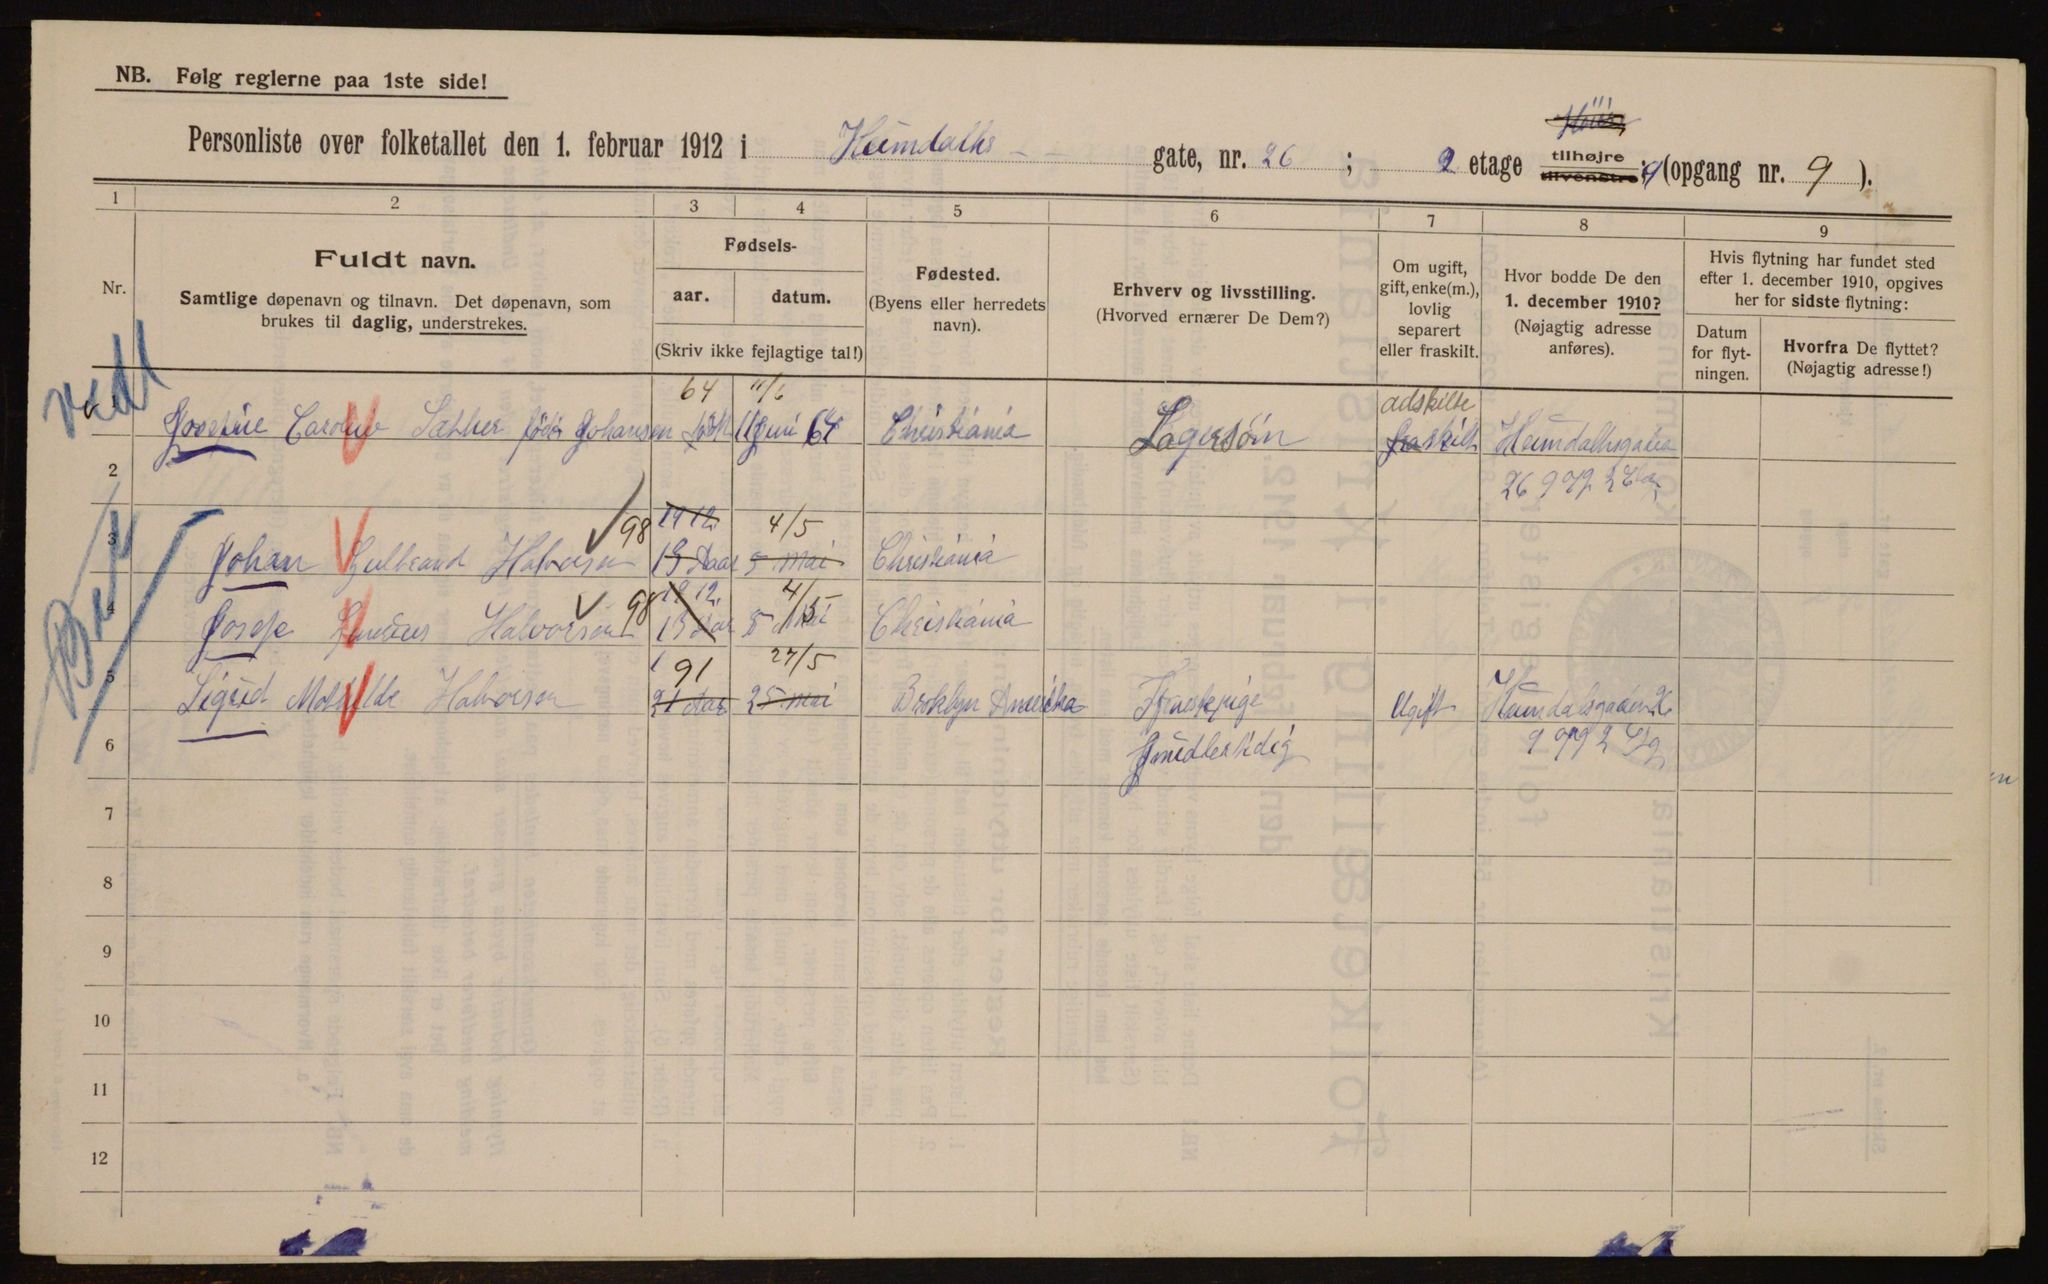 NB. Følg reglerne paa 1ste side!
Høire
Personliste over folketallet den 1. februar 1912 i Heimdalhs gate, nr. 26 ; 2 etage tilhøjre tilvenstre (opgang nr. 9 ).
1 2 3 4 5 6 7 8 9
Nr.
Fuldt navn.
Samtlige døpenavn og tilnavn. Det døpenavn, som
brukes til daglig, understrekes.
Fødsels-
aar. datum.
(Skriv ikke fejlagtige tal!)
Fødested.
(Byens eller herredets
navn).
Erhverv og livsstilling.
(Hvorved ernærer De Dem?)
Om ugift,
gift, enke(m.),
lovlig
separert
eller fraskilt.
Hvor bodde De den
1. december 1910?
(Nøjagtig adresse
anføres).
Hvis flytning har fundet sted
efter 1. december 1910, opgives
her for sidste flytning:
Datum
for flyt-
ningen.
Hvorfra De flyttet?
(Nøjagtig adresse!)
64 11/6 adskilte
Josefine Caroline Sæther født Johansen født 11 Juni 64 Christiania fraskilt Heimdalhsgaten
2 26 9 opg 2 Etg
1912 4/5
3 Johan Gulbrand Halvorsen 98 13 Aar 5 Mai Christiania
1912 4/5
4 Josef Halvorsen 98 13 Aar 5 Mai Christiania
91 27/5
5 Sigrid Mathilde Halvorsen 21 Aar 25 Mai Broklyn Amerika Huspige Ugift Heimdalsgaden 26
6 Imidlertidig 9 opg 2 Etg
7
8
9
10
11
12